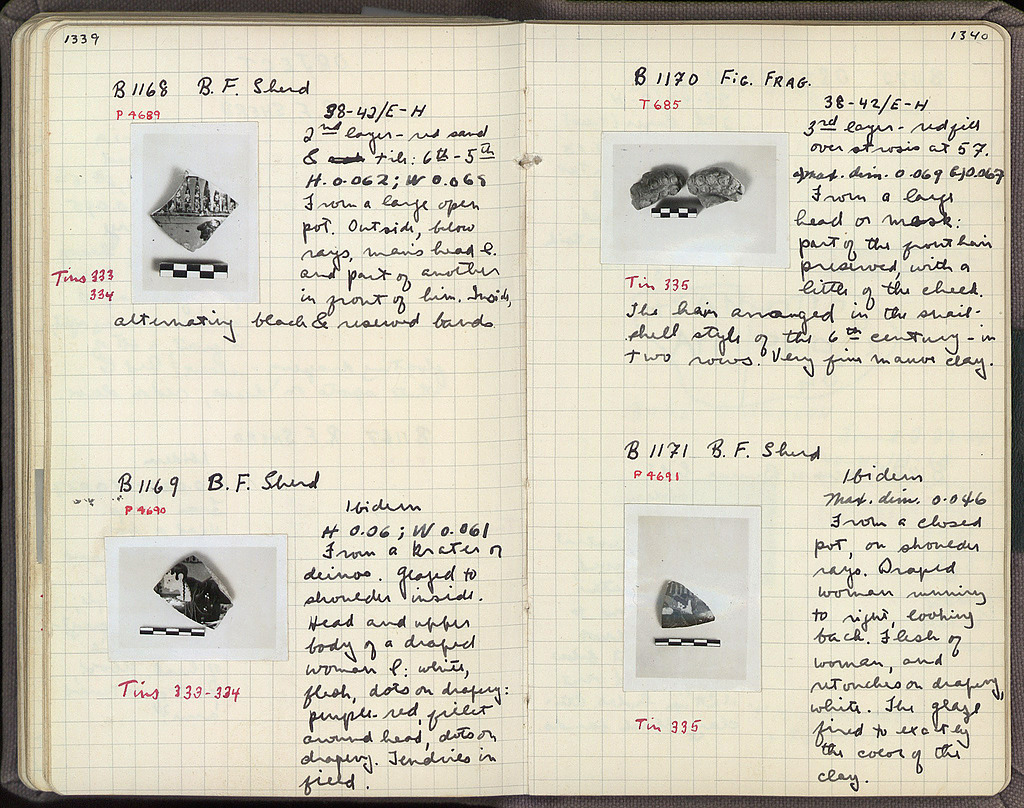 1339
B 1168 B. F. Sherd
P 4689
38-42/E-H
2nd layer - red sand
& tile: 6th - 5th
H. 0.062; W 0.068
From a large open
pot. Outside, below
rays, man's head l.
and part of another
in front of him. Inside,
alternating black & reserved bands.
Tins 333
334
B 1169 B. F. Sherd
P 4690
Ibidem
H 0.06; W 0.061
From a krater or
deinos. Glazed to
shoulder inside.
Head and upper
body of a draped
woman l: white,
flesh, dots on drapery:
purple-red, fillet
around head, dots on
drapery. Tendrils in
field.
Tins 333-334
1340
B 1170 FIG. FRAG.
T 685
38-42/E-H
3rd layer - red fill
over strosis at 57.
a) Max. dim. 0.069 b) 0.067
From a large
head or mask:
part of the front hair
preserved, with a
little of the cheek.
The hair arranged in the snail-
shell style of the 6th century - in
two rows. Very fine mauve clay.
Tin 335
B 1171 B. F. Sherd
P 4691
Ibidem
Max. dim. 0.046
From a closed
pot, on shoulder
rays. Draped
woman running
to right, looking
back. Flesh of
woman, and
retouches on drapery,
white. The glaze
fired to exactly
the color of the
clay.
Tin 335